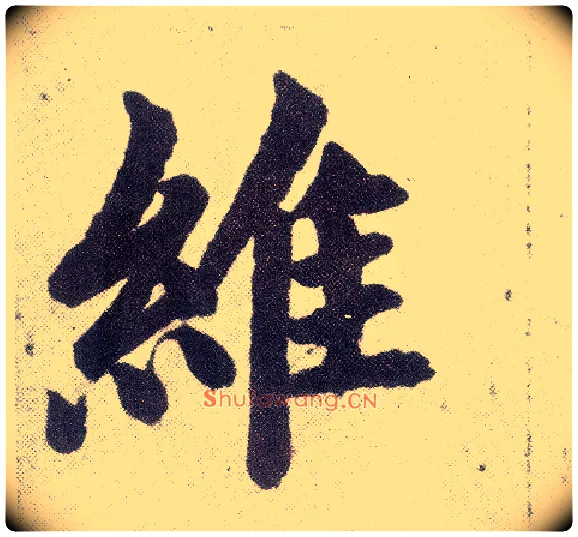 維
Shufawang.CN